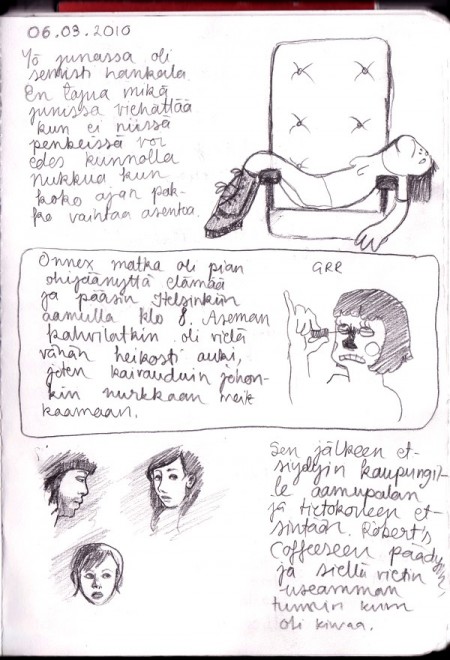 06.03.2010
Yö junassa oli
semisti hankala.
En tajua mikä
junissa viehättää
kun ei niissä
penkeissä voi
edes kunnolla
nukkua kun
koko ajan pak-
ko vaihtaa asentoa.
Onnex matka oli pian
ohijäänyttä elämää
ja pääsin Helsinkiin
aamulla klo 8. Aseman
kahvilatkin oli vielä
vähän heikosti auki,
joten kaivauduin johon-
kin nurkkaan meik
kaamaan.
GRR
Sen jälkeen et-
siydyin kaupungil-
le aamupalan
ja tietokoneen et-
sintään. Robert's
Coffeeseen päädyin
ja siellä vietin
useamman
tunnin kun
oli kivaa.